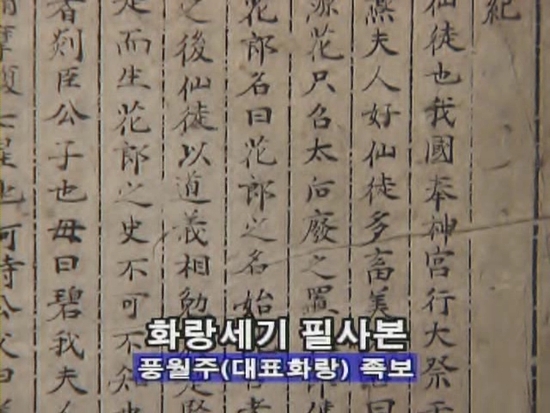 紀
仙徒也我國奉神宮行大祭
燕夫人好仙徒多畜美
源花只召太后廢之置
花郎名曰花郎之名始
之後仙徒以道義相勉
是而生花郎之史不可不知
者剡臣公子也母曰碧我夫人
也阿時公父曰
화랑세기 필사본
풍월주(대표화랑) 족보